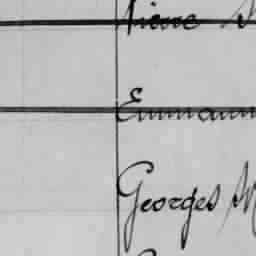 Pierre
Emmanu
Georges M